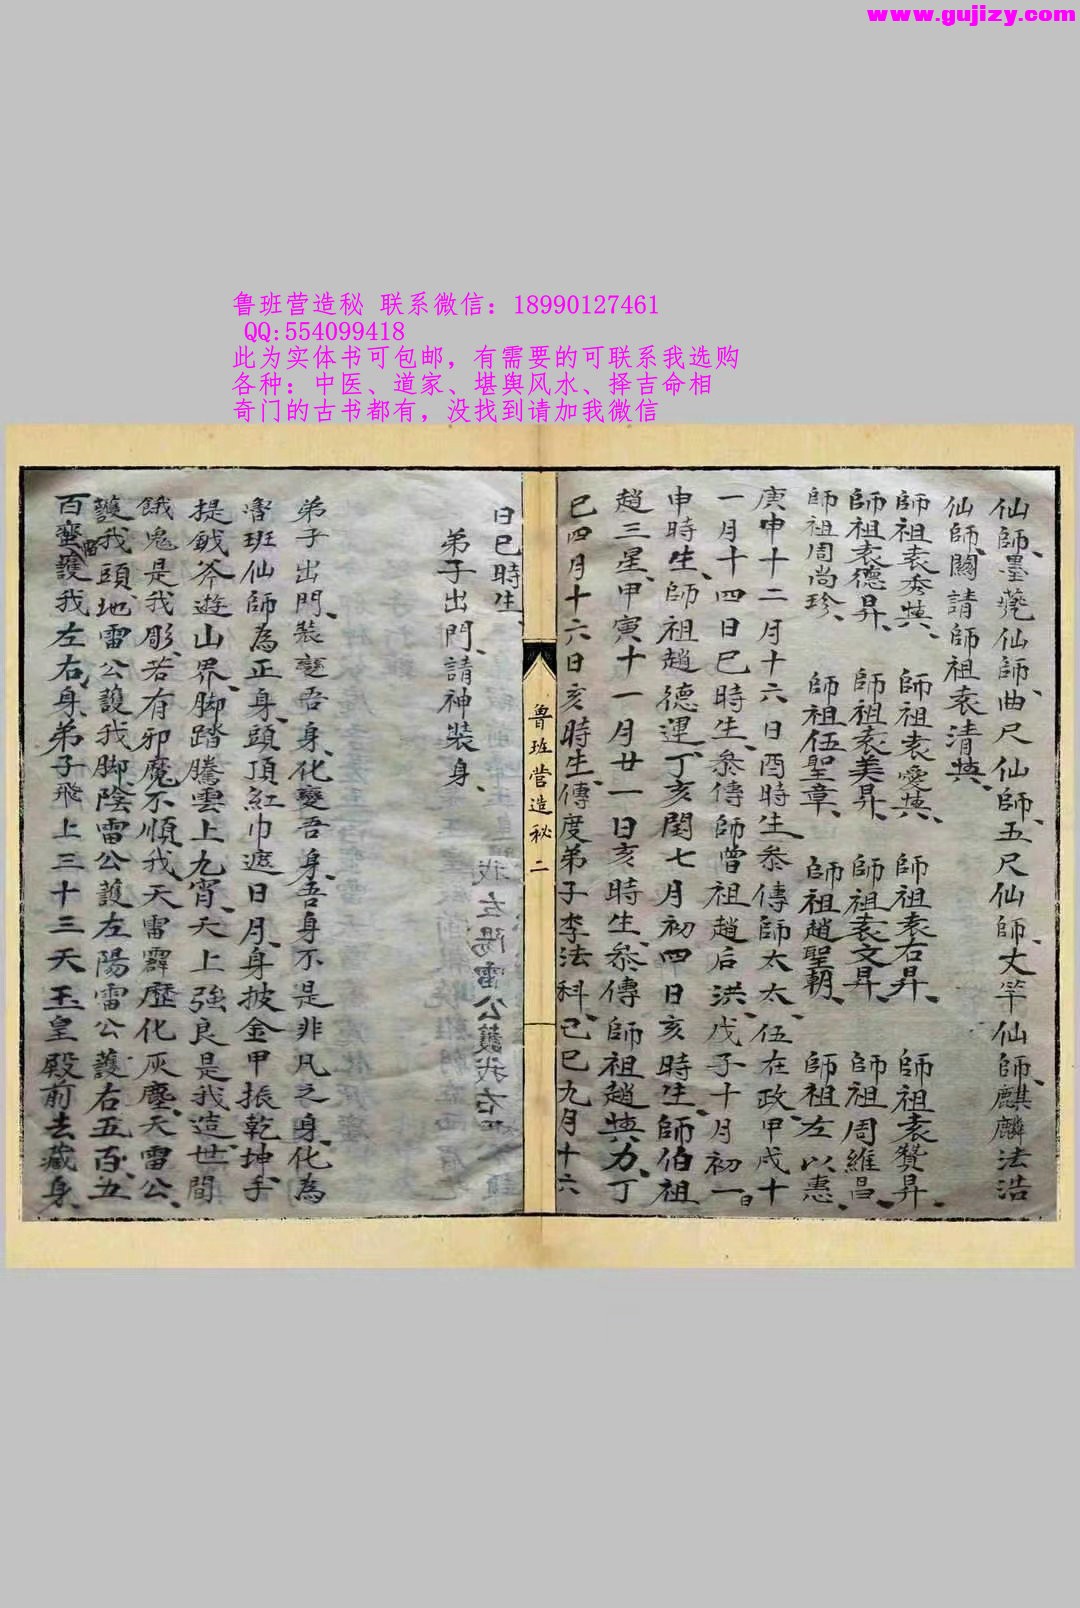 www.gujizy.com
鲁班营造秘 联系微信：18990127461
QQ:554099418
此为实体书可包邮，有需要的可联系我选购
各种：中医、道家、堪舆风水、择吉命相
奇门的古书都有，没找到请加我微信
仙師、墨蕘仙師、曲尺仙師、五尺仙師、丈竿仙師、麒麟法浩
仙師、關請師祖袁清典、
師祖袁秀典、 師祖袁愛典、 師祖袁右昇、 師祖袁贊昇、
師祖袁德昇、 師祖袁美昇、 師祖袁文昇、 師祖周維昌、
師祖周尚珍、 師祖伍聖章、 師祖趙聖朝、 師祖左以惠、
庚申十二月十六日酉時生、叅傳師太太、伍在政、甲戌十
一月十四日巳時生、叅傳師曾祖趙后洪、戊子十月初一日
申時生、師祖趙德運、丁亥閏七月初四日亥時生、師伯祖
趙三星、甲寅十一月廿一日亥時生、叅傳師祖趙典力、丁
巳四月十六日亥時生、傳度弟子李法科、己巳九月十六
日巳時生、
弟子出門、請神裝身、
鲁班营造秘 二
弟子出門、裝變吾身、化變吾身、吾身不是非凡之身、化為
魯班仙師為正身、頭頂紅巾遮日月、身披金甲振乾坤、手
提鉞斧遊山界、脚踏騰雲上九宵、天上強良是我造、世間
餓鬼是我彫、若有邪魔不順我、天雷霹歷化灰塵、天雷公
護我頭、地雷公護我脚、陰雷公護左、陽雷公護右、五百、五
百蛮雷護我左右身、弟子飛上三十三天玉皇殿前去藏身、